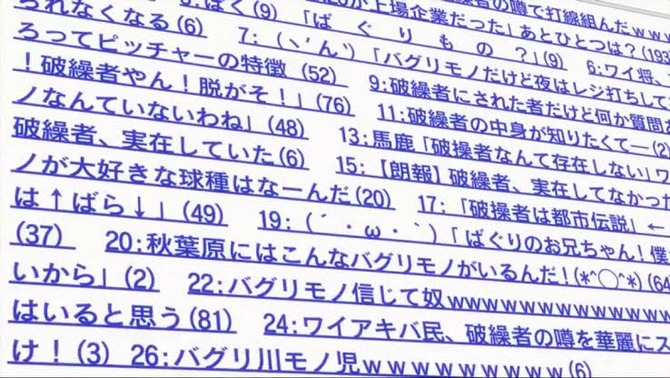 上場企業だった」あとひとつは？(193
の噂で打線組んだｗｗｗ
られなくなる (6)
ばく (9) 「ば ぐ り も の ？」(9) 6:ワイ将、
ろってピッチャーの特徴 (52) 7: (ヽ´ん`)「バグリモノだけど夜はレジ打ちして
！破繰者やん！脱がそ！」(76) 9:破繰者にされた者だけど何か質問
ノなんていないわね」(48) 11:破繰者の中身が知りたくて―(2)
破繰者、実在していた(6) 13:馬鹿「破操者なんて存在しない」ワ
ノが大好きな球種はなーんだ(20) 15:【朗報】破繰者、実在してなかった
は↑ばら↓」(49) 17:「破操者は都市伝説」←
(37) 19: (´・ω・`)「ばぐりのお兄ちゃん！僕
20:秋葉原にはこんなバグリモノがいるんだ！(*^◯^*) (64
いから」(2) 22:バグリモノ信じて奴ｗｗｗｗｗｗｗｗｗｗｗ
はいると思う(81) 24:ワイアキバ民、破繰者の噂を華麗にス
け！(3) 26:バグリ川モノ児ｗｗｗｗｗｗｗｗｗ(6)